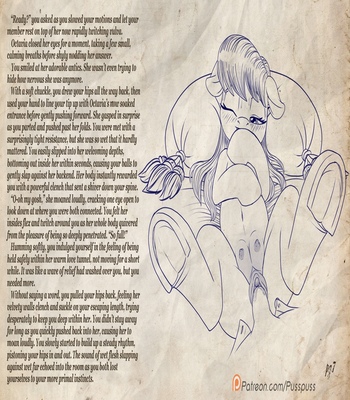 "Ready?" you asked as you slowed your motions and let your
member rest on top of her now rapidly twitching vulva.
Octavia closed her eyes for a moment, taking a few small,
calming breaths before shyly nodding her answer.
You smiled at her adorable antics. She wasn't even trying to
hide how nervous she was anymore.
With a soft chuckle, you drew your hips all the way back, then
used your hand to line your tip up with Octavia's now soaked
entrance before gently pushing forward. She gasped in surprise
as you parted and pushed past her folds. You were met with a
surprisingly tight resistance, but she was so wet that it hardly
mattered. You easily slipped into her welcoming depths,
bottoming out inside her within seconds, causing your balls to
gently slap against her backend. Her body instantly rewarded
you with a powerful clench that sent a shiver down your spine.
"O-oh my gosh," she moaned loudly, cracking one eye open to
look down at where you were both connected. You felt her
insides flex and twitch around you as her whole body quivered
from the pleasure of being so deeply penetrated. "So full!"
Humming softly, you indulged yourself in the feeling of being
held safely within her warm love tunnel, not moving for a short
while. It was like a wave of relief had washed over you, but you
needed more.
Without saying a word, you pulled your hips back, feeling her
velvety walls clench and suckle on your escaping length, trying
desperately to keep you deep within her. You didn't stay away
for long as you quickly pushed back into her, causing her to
moan loudly. You slowly started to build up a steady rhythm,
pistoning your hips in and out. The sound of wet flesh slapping
against wet fur echoed into the room as you both lost
yourselves to your more primal instincts.
Patreon.com/Pusspuss